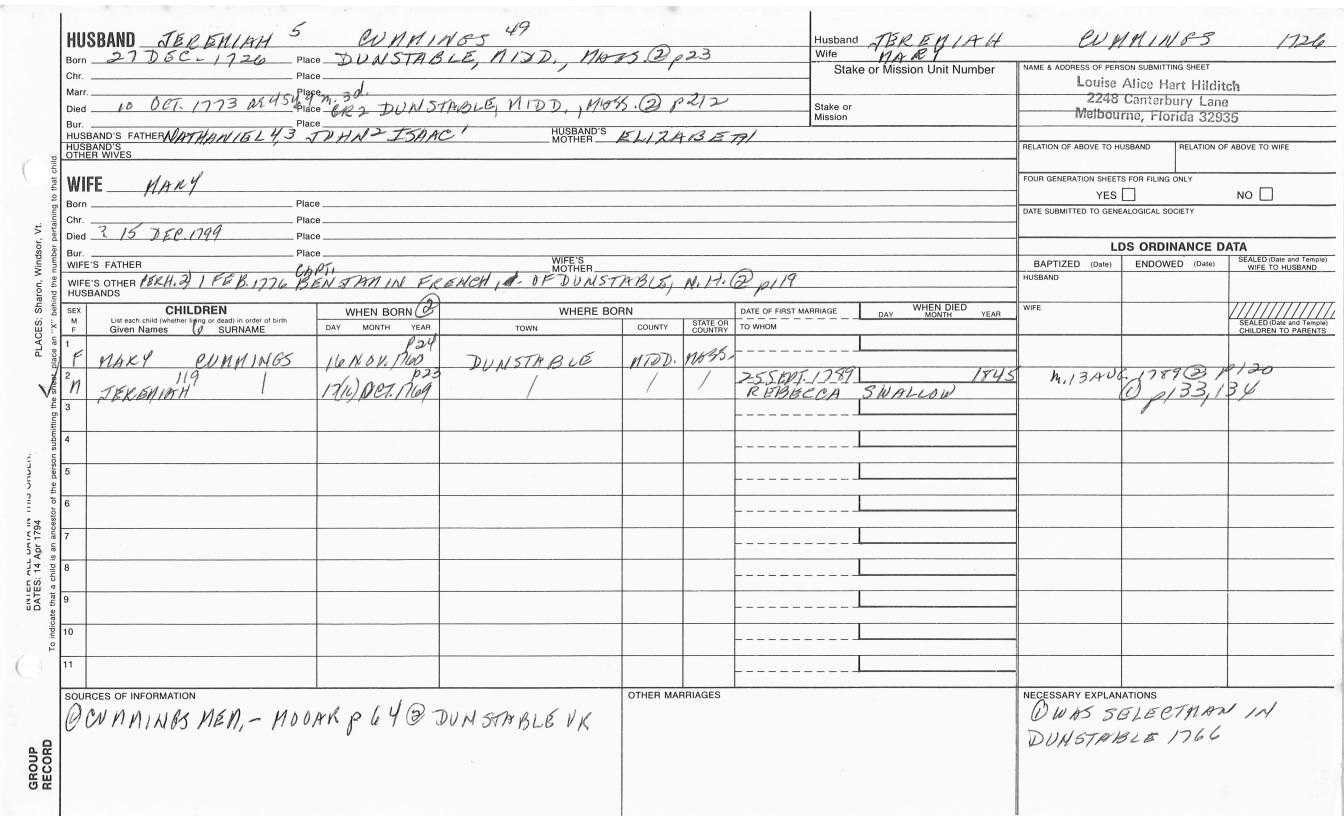 HUSBAND JEREMIAH 5 CUMMINGS 49
Born 27 DEC. 1726 Place DUNSTABLE, MIDD., MASS. ② p23
Chr. Place
Marr. Place
Died 10 OCT. 1773 AE 45y 9m. 3d. Place GR2 DUNSTABLE, MIDD., MASS. ② p212
Bur. Place
HUSBAND'S FATHER NATHANIEL 4,3 JOHN 2 ISAAC 1 HUSBAND'S MOTHER ELIZABETH
HUSBAND'S OTHER WIVES
Husband JEREMIAH CUMMINGS 1726
Wife MARY
Stake or Mission Unit Number
Stake or Mission
NAME & ADDRESS OF PERSON SUBMITTING SHEET
Louise Alice Hart Hilditch
2248 Canterbury Lane
Melbourne, Florida 32935
RELATION OF ABOVE TO HUSBAND RELATION OF ABOVE TO WIFE
FOUR GENERATION SHEETS FOR FILING ONLY
YES NO
DATE SUBMITTED TO GENEALOGICAL SOCIETY
WIFE MARY
Born Place
Chr. Place
Died ? 15 DEC. 1799 Place
Bur. Place
WIFE'S FATHER WIFE'S MOTHER
WIFE'S OTHER HUSBANDS PERH. 2) 1 FEB. 1776 CAPT. BENJAMIN FRENCH, OF DUNSTABLE, N.H. ② p119
LDS ORDINANCE DATA
BAPTIZED (Date) ENDOWED (Date) SEALED (Date and Temple) WIFE TO HUSBAND
HUSBAND
WIFE
SEALED (Date and Temple) CHILDREN TO PARENTS
SEX M F
CHILDREN
List each child (whether living or dead) in order of birth
Given Names SURNAME
WHEN BORN ②
DAY MONTH YEAR
WHERE BORN
TOWN COUNTY STATE OR COUNTRY
DATE OF FIRST MARRIAGE
TO WHOM
WHEN DIED
DAY MONTH YEAR
1 F MARY CUMMINGS 16 NOV. 1760 p24 DUNSTABLE MIDD. MASS.
2 M JEREMIAH 119 17(16) OCT. 1769 p23 25 SEPT. 1789 REBECCA SWALLOW 1845 m. 13 AUG. 1789 ② p120
① p133, 134
3
4
5
6
7
8
9
10
11
SOURCES OF INFORMATION
① CUMMINGS MEM. - MOOAR p 64 ② DUNSTABLE VR
OTHER MARRIAGES
NECESSARY EXPLANATIONS
① WAS SELECTMAN IN
DUNSTABLE 1766
PLACES: Sharon, Windsor, Vt.
DATES: 14 Apr 1794
ENTER ALL DATA IN THIS ORDER:
To indicate that a child is an ancestor of the person submitting the sheet, place an "X" behind the number pertaining to that child.
GROUP RECORD